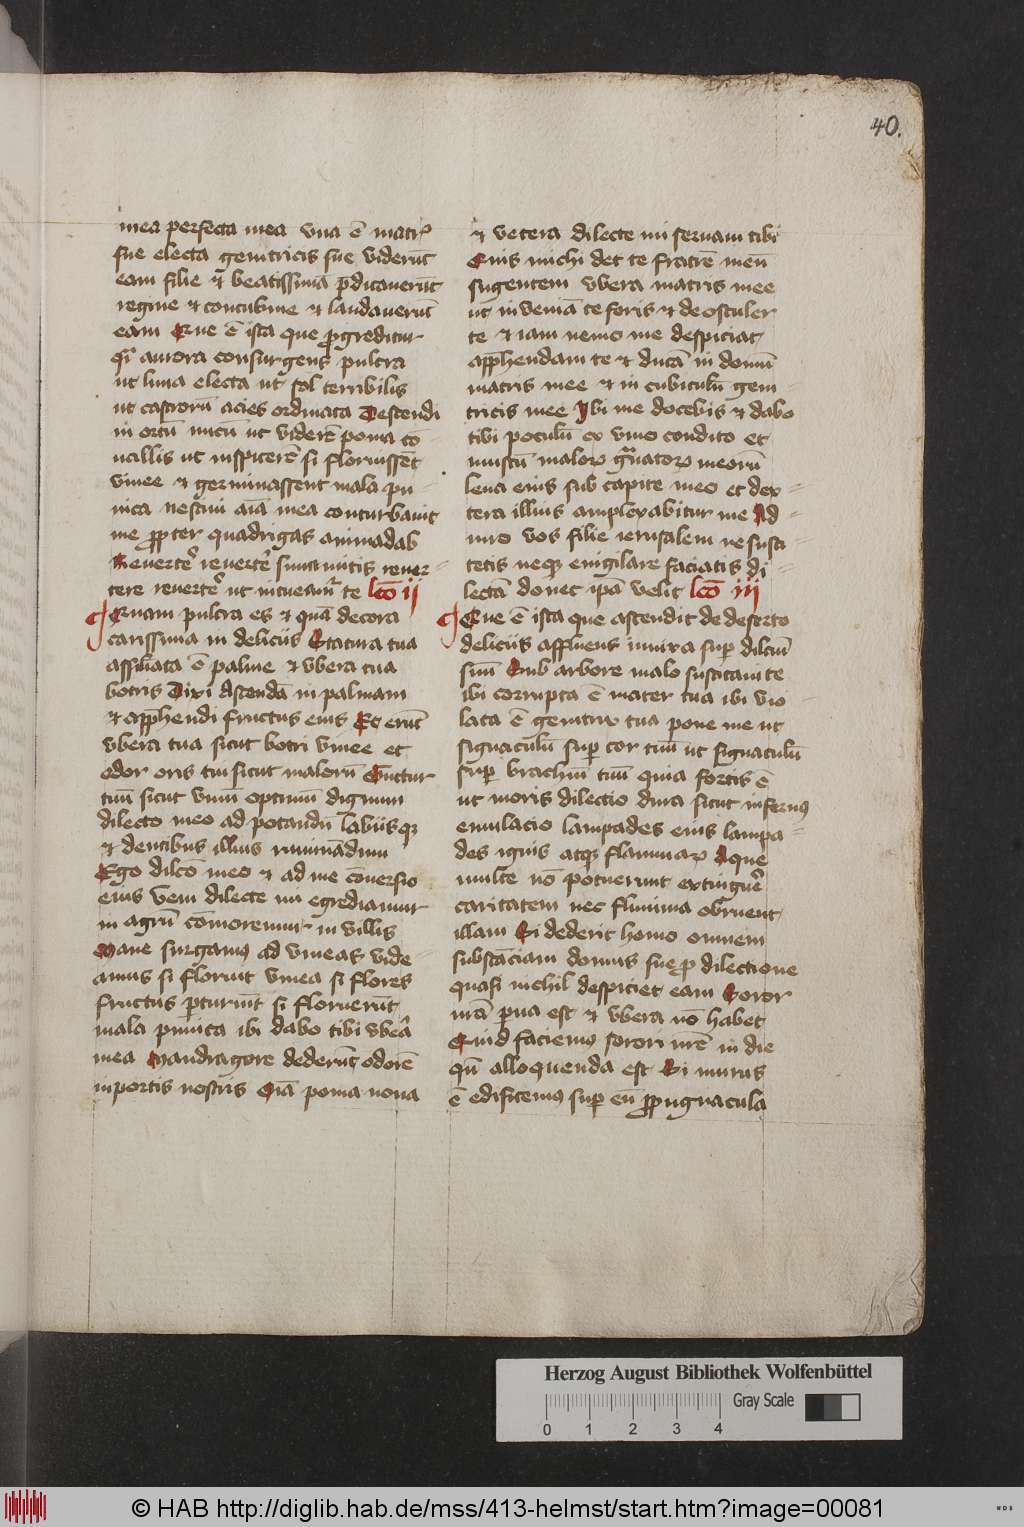 40.
mea perfecta mea vna ē matrꝭ
sue electa genitricis sue viderūt
eam filie ⁊ beatissimā p̄dicauerūt
regine ⁊ concubine ⁊ laudauerūt
eam Que ē ista que ꝓgreditur
qͣi aurora consurgens pulcra
ut luna electa ut sol terribilis
ut castrorū acies ordinata Descendi
in ortū nucū ut viderē poma cō-
uallis ut inspicerē si floruissēt
vinee ⁊ germinassent mala pu-
nica Nesciui aīā mea conturbauit
me ꝓpter quadrigas aminadab
Reuertēˀ reuertēˀ sunamitis reuer-
tere reuertēˀ ut intueamͬ te lcō ij
Quam pulcra es ⁊ quā decora
carissima in deliciis Statura tua
assīlata ē palme ⁊ vbera tua
botris Dixi Ascendā in palmam
⁊ app̄hendi fructus eius Et erūt
vbera tua sicut botri vinee et
odor oris tui sicut malorū Guttur
tuū sicut vinū optimū dignum
dilecto meo ad potandū labiisqꝫ
⁊ dentibus illius ruminādum
Ego dilcō meo ⁊ ad me cōuersio
eius Veni dilecte mi egrediamur
in agrū cōmoremur in villis
Mane surgamꝰ ad vineas vide-
amus si floruit vinea si flores
fructus ꝑturiūt si floruerūt
mala punica ibi dabo tibi vbeͣa
mea Mandragore dederūt odorē
in portis nostris Oīa poma noua
⁊ vetera dilecte mi seruaui tibi
Quis michi det te fratrē meū
sugentem vbera matris mee
ut inueniā te foris ⁊ deosculer
te ⁊ iam nemo me despiciat
app̄hendam te ⁊ ducā in domū
matris mee ⁊ in cubiculū geni-
tricis mee Ibi me docebis ⁊ dabo
tibi poculū ex vino condito et
mustū maloꝝ gͣnatoꝝ meorū
leua eius sub capite meo et dex-
tera illius amplexabitur me Ad-
iuro vos filie ierusalem ne susci-
tetis neqꝫ euigilare faciatis di-
lectā donec ipā velit lcō iij
Que ē ista que ascendit de deserto
deliciis affluens innixa suꝑ dilcūm
suū Sub arbore malo suscitaui te
ibi corrupta ē mater tua ibi vio
lata ē genitrix tua pone me ut
signaculū suꝑ cor tuū ut signaculū
suꝑ brachiū tuū quia fortis ē
ut moris dilectio dura sicut infernꝰ
emulacio lampades eius lampa-
des ignis atqꝫ flammaꝝ Aque
multe nō potuerunt extinguēˀ
caritatem nec flumina obruent
illam Si dederit homo omnem
substāciam domus sue ꝓ dilectione
quasi nichil despiciet eam Soror
nr̄a ꝑua est ⁊ vbera nō habet
Quid faciemꝰ sorori nr̄e in die
qn̄ alloquenda est Si murus
ē edificemꝰ suꝑ eū ꝓpugnacula
Herzog August Bibliothek Wolfenbüttel
Gray Scale
0 1 2 3 4
© HAB http://diglib.hab.de/mss/413-helmst/start.htm?image=00081